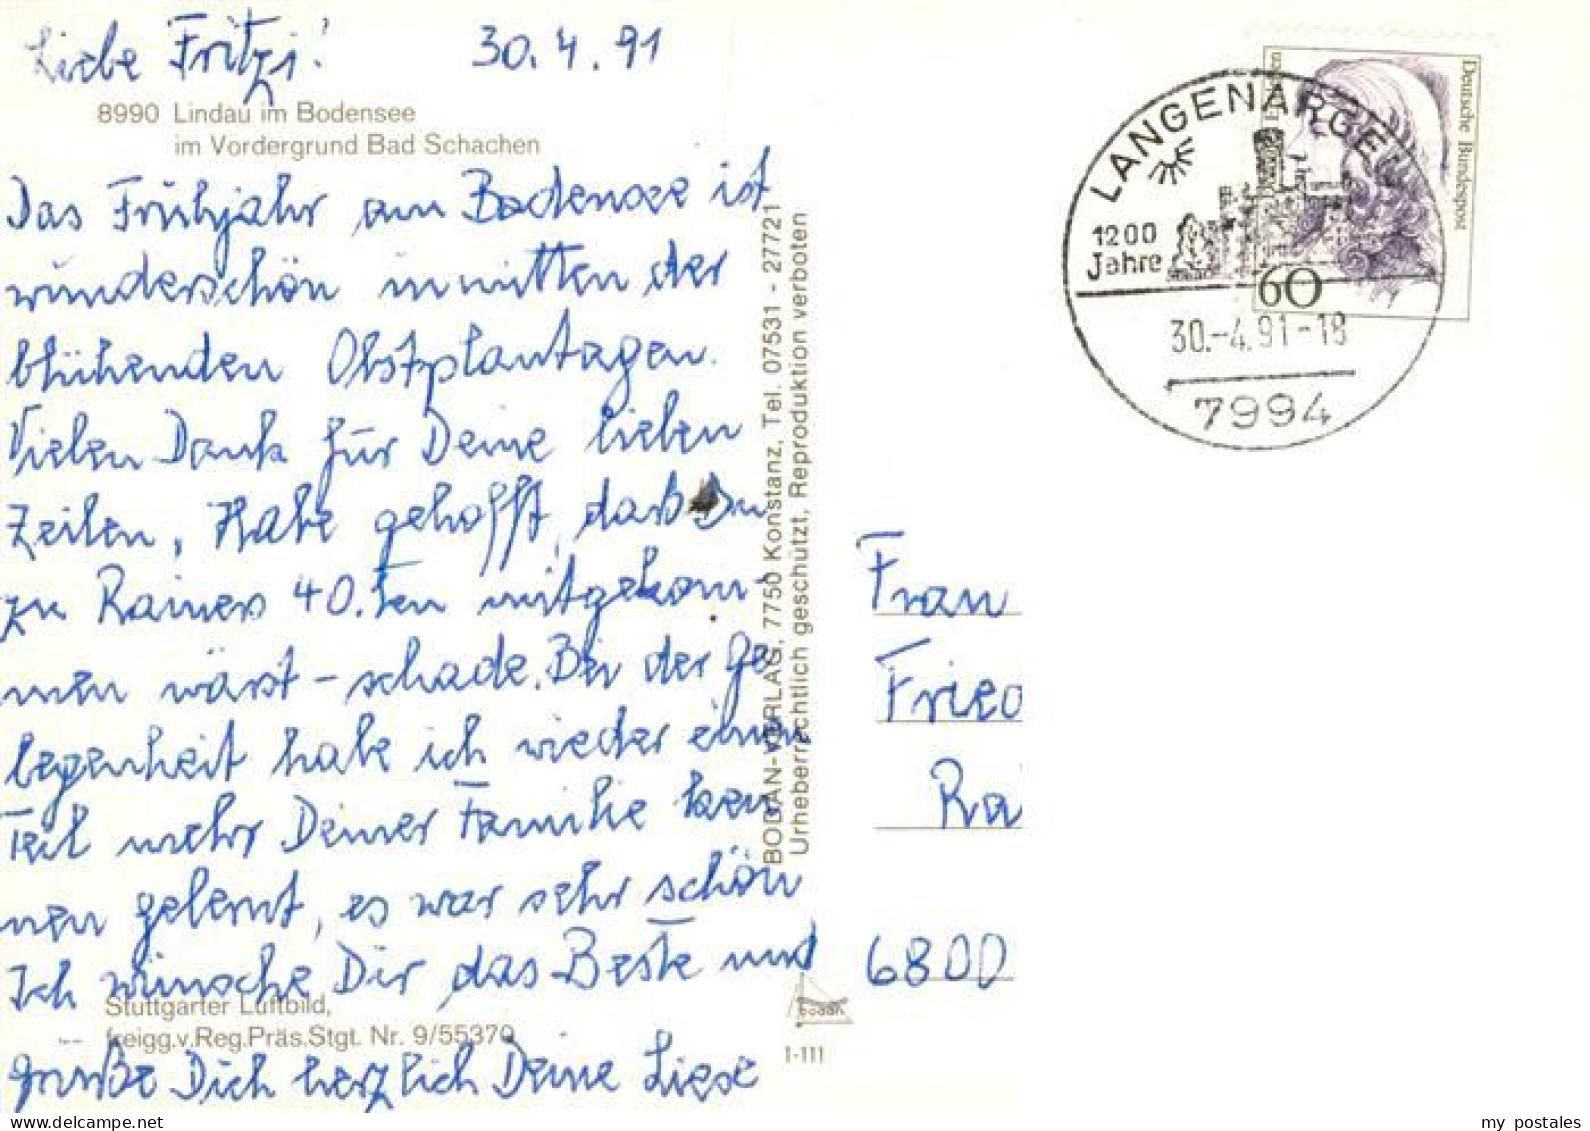 Liebe Fritzi! 30.4.91
8990 Lindau im Bodensee
im Vordergrund Bad Schachen
Das Frühjahr am Bodensee ist
wunderschön inmitten der
blühenden Obstplantagen.
Vielen Dank für Deine lieben
Zeilen, Habe gehofft, daß Du
zu Rainers 40.ten mitgekom-
men wärst - schade. Bei der Ge
legenheit habe ich wieder einen
Teil mehr Deiner Familie ken
nen gelernt, es war sehr schön
Ich wünsche Dir das Beste und
Stuttgarter Luftbild,
freigg.v.Reg.Präs.Stgt. Nr. 9/55370
grüße Dich herzlich Deine Liese
BODAN-VERLAG, 7750 Konstanz, Tel. 07531 - 27721
Urheberrechtlich geschützt, Reproduktion verboten
BODAN
1-111
LANGENARGE
1200
Jahre
30.-4.91-18
7994
Deutsche Bundespost
60
Frau
Fried
Ra
6800
my postales